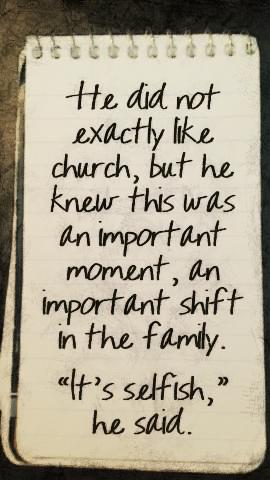 He did not
exactly like
church, but he
knew this was
an important
moment, an
important shift
in the family.
“It's selfish,”
he said.